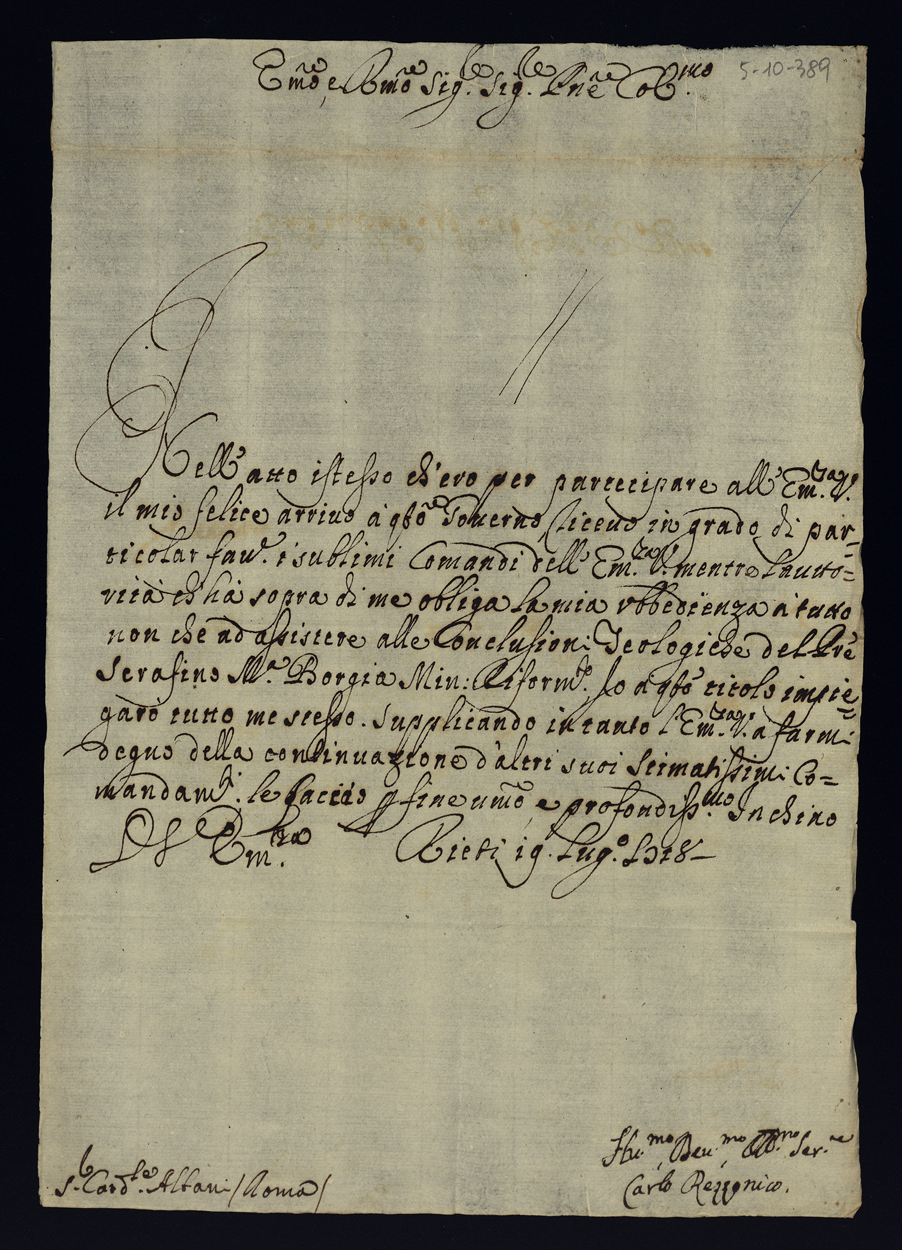 Em̃o, e Rm̃o Sig.re Sig.re Pñe Col.mo
5-10-389
Nell' atto istesso ch'ero per partecipare all' Em.za V.
il mio felice arrivo à qsto Governo, ricevo in grado di par=
ticolar fav.e i sublimi Comandi dell' Em.za V. mentre l'autto=
rità ch'hà sopra di me obliga la mia ubbedienza à tutto
non che ad assistere alle Conclusioni Teologiche del Prẽ
Serafino M.a Borgia Min: Riform.o. Io a qsto titolo impie=
garò tutto me stesso. Supplicando intanto l'Em.za V. a farmi
degno della continuazione d'altri suoi stimatissimi Co=
mandam.ti: le faccio p fine um̃o, e profondiss.mo Inchino
D V Em.za Rieti 19. Lug.o 1718
Hu.mo, Dev.mo, Obb.mo Ser.re
S.r Card.le Albani /Roma/
Carlo Rezzonico.